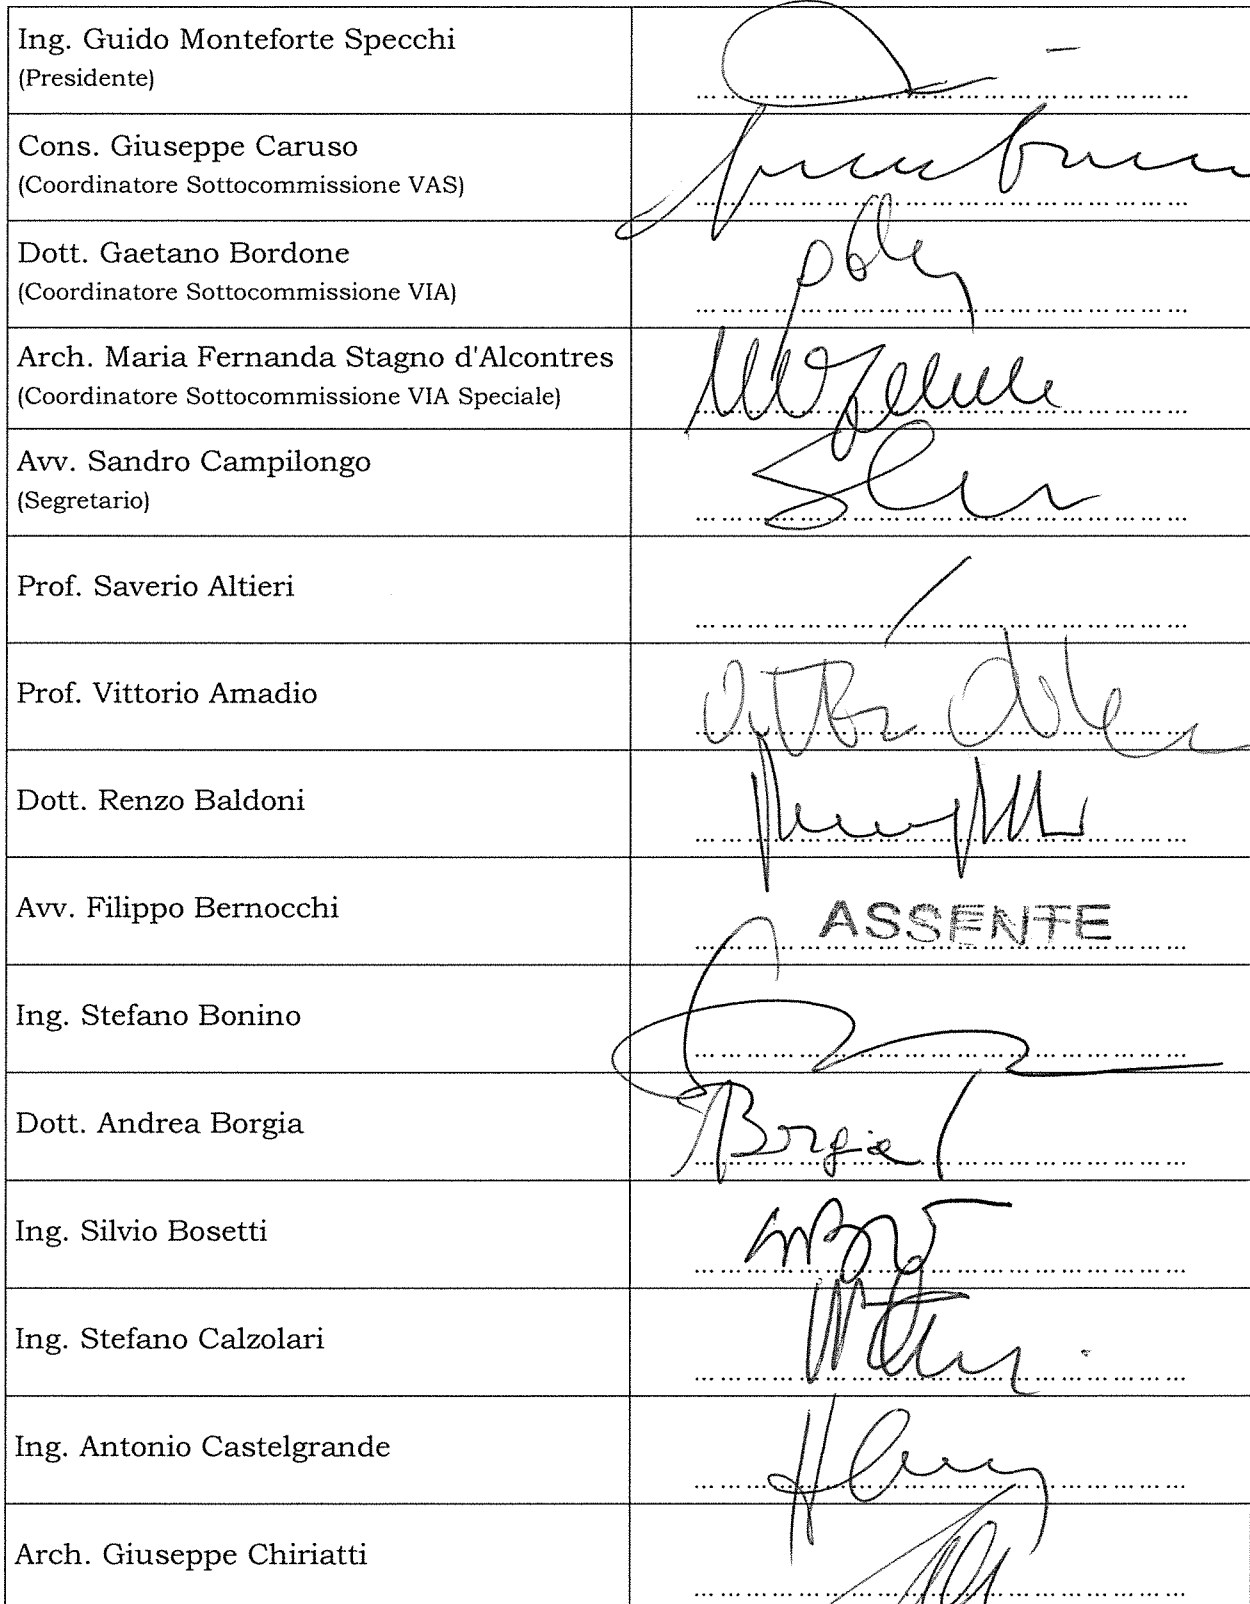 Ing. Guido Monteforte Specchi
(Presidente)
Cons. Giuseppe Caruso
(Coordinatore Sottocommissione VAS)
Dott. Gaetano Bordone
(Coordinatore Sottocommissione VIA)
Arch. Maria Fernanda Stagno d'Alcontres
(Coordinatore Sottocommissione VIA Speciale)
Avv. Sandro Campilongo
(Segretario)
Prof. Saverio Altieri
Prof. Vittorio Amadio
Dott. Renzo Baldoni
Avv. Filippo Bernocchi
ASSENTE
Ing. Stefano Bonino
Dott. Andrea Borgia
Borgia
Ing. Silvio Bosetti
Ing. Stefano Calzolari
Ing. Antonio Castelgrande
Arch. Giuseppe Chiriatti